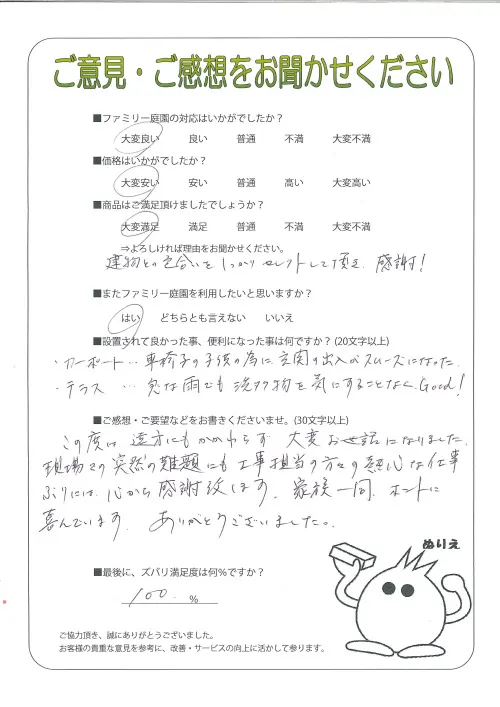 ご意見・ご感想をお聞かせください
■ファミリー庭園の対応はいかがでしたか？
大変良い 良い 普通 不満 大変不満
■価格はいかがでしたか？
大変安い 安い 普通 高い 大変高い
■商品はご満足頂けましたでしょうか？
大変満足 満足 普通 不満 大変不満
⇒よろしければ理由をお聞かせください。
建物との色合いをしっかりセレクトして頂き、感謝！
■またファミリー庭園を利用したいと思いますか？
はい どちらとも言えない いいえ
■設置されて良かった事、便利になった事は何ですか？(20文字以上)
・カーポート…車椅子の子供の為に玄関の出入がスムーズになった。
・テラス …急な雨でも洗たく物を気にすることなくGood！
■ご感想・ご要望などをお書きくださいませ。(30文字以上)
この度は遠方にもかかわらず 大変お世話になりました。
現場での突然の難題にも工事担当の方々の熱心な仕事
ぶりには、心から感謝致します。家族一同、ホントに
喜んでいます。ありがとうございました。
ぬりえ
■最後に、ズバリ満足度は何％ですか？
100 %
ご協力頂き、誠にありがとうございました。
お客様の貴重な意見を参考に、改善・サービスの向上に活かして参ります。